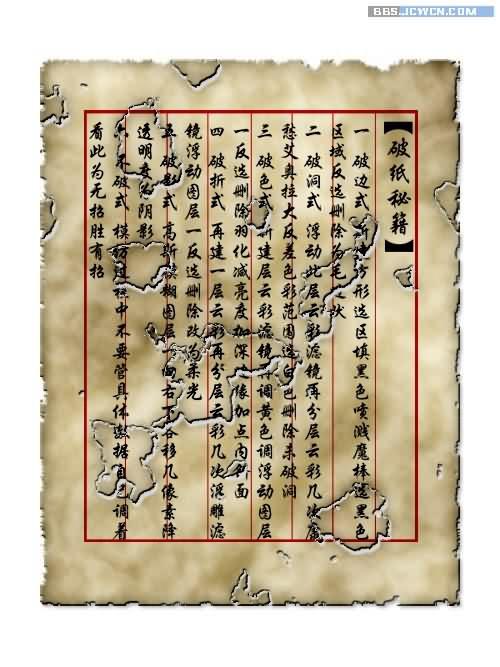 BBS.JCWCN.COM
【破纸秘籍】
一 破边式 新建方形选区填黑色喷溅魔棒选黑色
区域反选删除为毛 状
二 破洞式 浮动此层云彩滤镜再分层云彩几次
愁艾奥拉大反差色彩范围选白色删除杀破洞
三 破色式 新建层云彩滤镜再调黄色调浮动图层
一反选删除羽化减亮度加深 像加点内斜面
四 破折式 再建一层云彩再分层云彩几次浮雕滤
镜浮动图层一反选删除改为柔光
五 破影式 高斯模糊图层一向右下各移几像素降
透明度为阴影
六 不破式 模仿过程中不要管具体数据自己调着
看此为无招胜有招